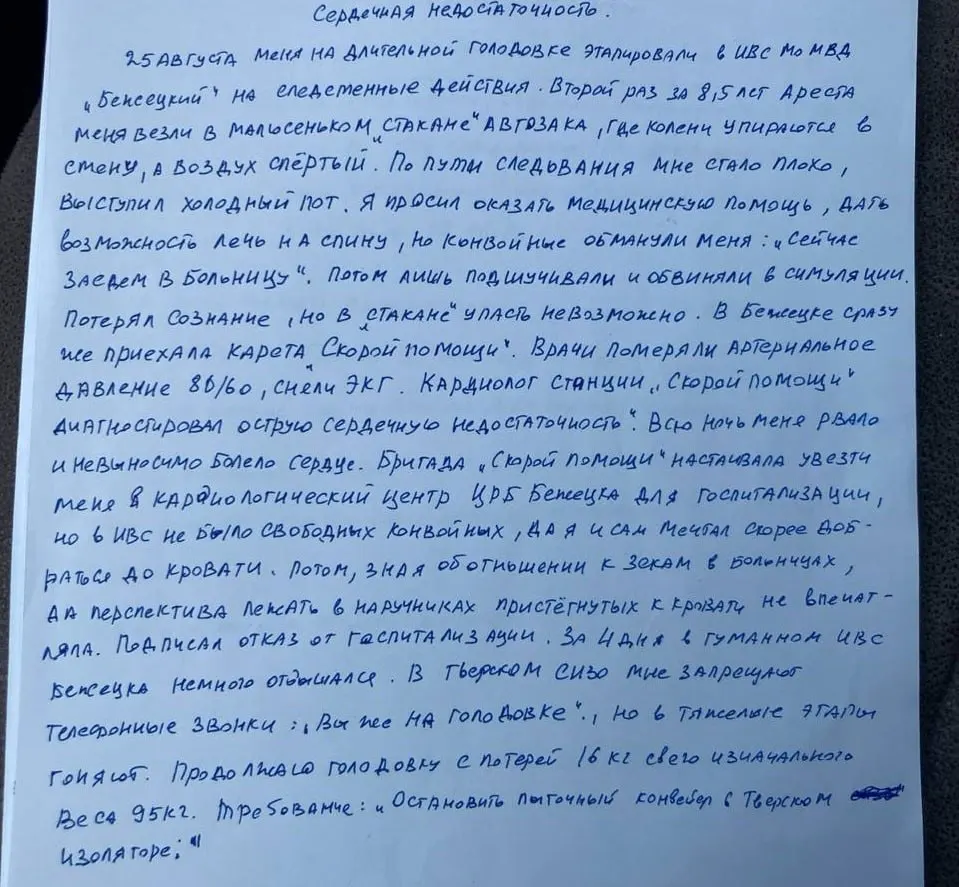 Сердечная недостаточность.
25 августа меня на длительной голодовке этапировали в ИВС МО МВД
„Бежецкий" на следственные действия. Второй раз за 8,5 лет ареста
меня везли в малюсеньком „стакане" автозака, где колени упираются в
стену, а воздух спёртый. По пути следования мне стало плохо,
выступил холодный пот. Я просил оказать медицинскую помощь, дать
возможность лечь на спину, но конвойные обманули меня: „Сейчас
заедем в больницу". Потом лишь подшучивали и обвиняли в симуляции.
Потерял сознание, но в „стакане" упасть невозможно. В Бежецке сразу
же приехала карета „Скорой помощи". Врачи померяли артериальное
давление 80/60, сняли ЭКГ. Кардиолог станции „Скорой помощи"
диагностировал острую сердечную недостаточность". Всю ночь меня рвало
и невыносимо болело сердце. Бригада „Скорой помощи" настаивала увезти
меня в кардиологический центр ЦРБ Бежецка для госпитализации,
но в ИВС не было свободных конвойных, да я и сам мечтал скорее доб-
раться до кровати. Потом, зная об отношении к зекам в больницах,
да перспектива лежать в наручниках пристёгнутых к кровати не впечат-
ляла. Подписал отказ от госпитализации. За 4 дня в гуманном ИВС
Бежецка немного отдышался. В Тверском СИЗО мне запрещают
телефонные звонки: „Вы же на голодовке"., но в тяжелые этапы
гоняют. Продолжаю голодовку с потерей 16 кг свего изначального
веса 95кг. Требование: „Остановить пыточный конвейер в Тверском
изоляторе;"